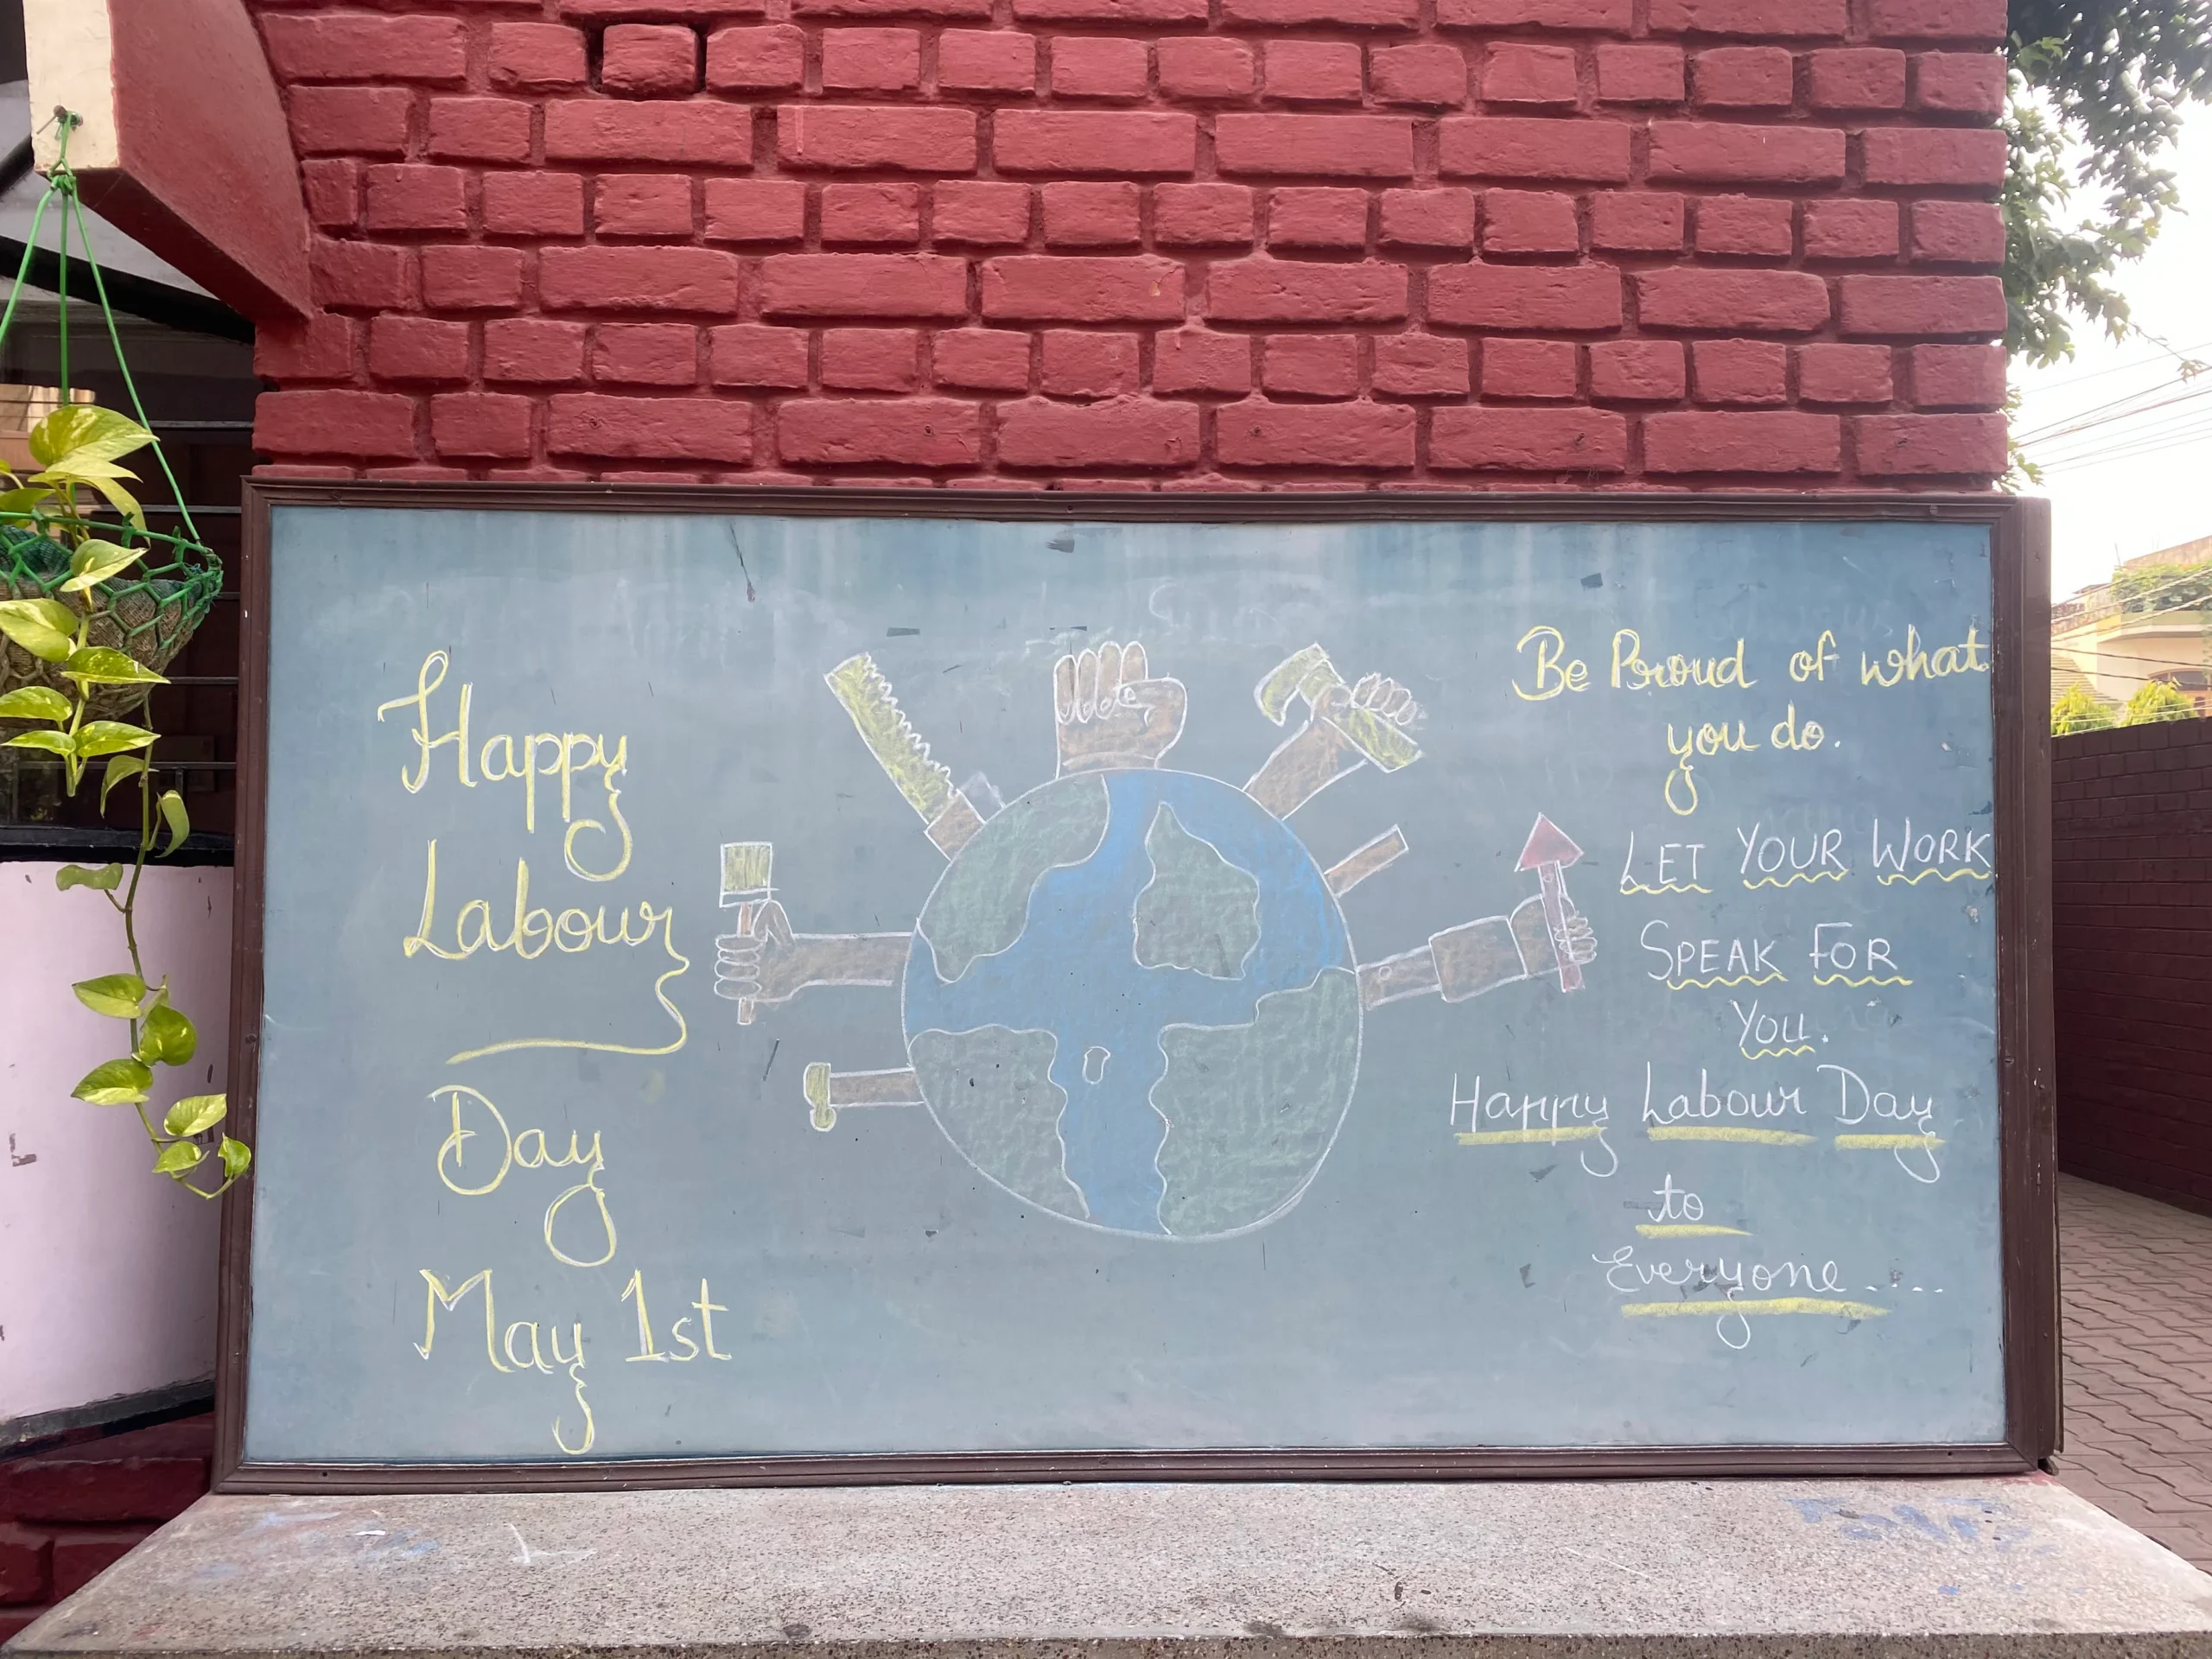 Happy
Labour
Day
May 1st
Be Proud of what
you do.
LET YOUR WORK
SPEAK FOR
YOU.
Happy Labour Day
to
Everyone....